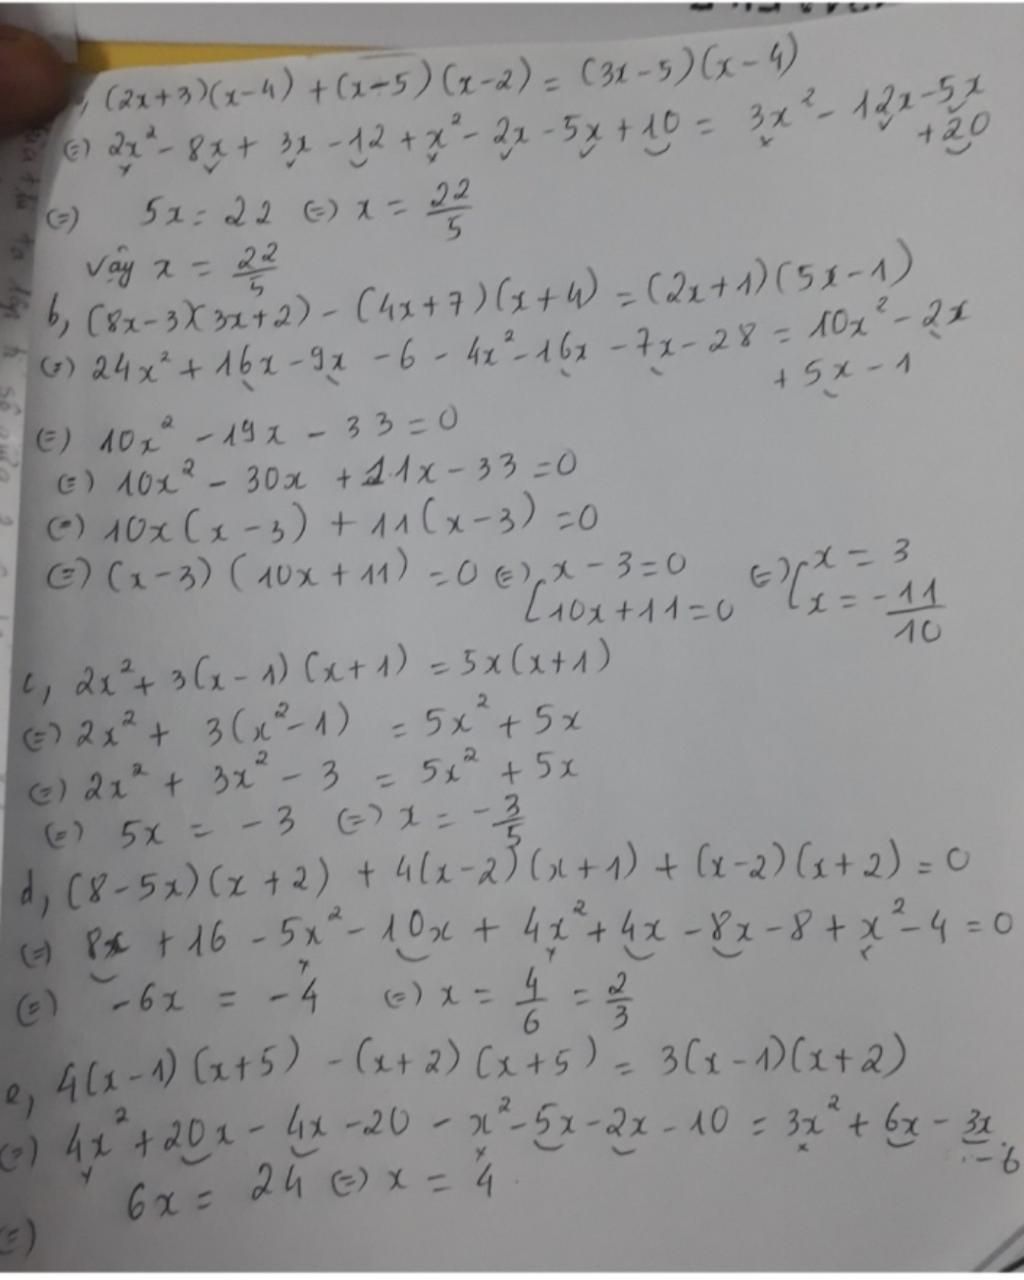 , (2x+3)(x-4) + (x-5)(x-2) = (3x-5)(x-4)
(=) 2x² - 8x + 3x - 12 + x² - 2x - 5x + 10 = 3x² - 12x - 5x
+ 20
(=) 5x = 22 (=) x = 22/5
Vậy x = 22/5
b, (8x-3)(3x+2) - (4x+7)(x+4) = (2x+1)(5x-1)
(=) 24x² + 16x - 9x - 6 - 4x² - 16x - 7x - 28 = 10x² - 2x
+ 5x - 1
(=) 10x² - 19x - 33 = 0
(=) 10x² - 30x + 11x - 33 = 0
(=) 10x(x-3) + 11(x-3) = 0
(=) (x-3)(10x+11) = 0 (=) [x-3=0 (=) [x = 3
10x+11=0 x = -11/10
c, 2x² + 3(x-1)(x+1) = 5x(x+1)
(=) 2x² + 3(x²-1) = 5x² + 5x
(=) 2x² + 3x² - 3 = 5x² + 5x
(=) 5x = -3 (=) x = -3/5
d, (8-5x)(x+2) + 4(x-2)(x+1) + (x-2)(x+2) = 0
(=) 8x + 16 - 5x² - 10x + 4x² + 4x - 8x - 8 + x² - 4 = 0
(=) -6x = -4 (=) x = 4/6 = 2/3
e, 4(x-1)(x+5) - (x+2)(x+5) = 3(x-1)(x+2)
(=) 4x² + 20x - 4x - 20 - x² - 5x - 2x - 10 = 3x² + 6x - 3x
- 6
(=) 6x = 24 (=) x = 4